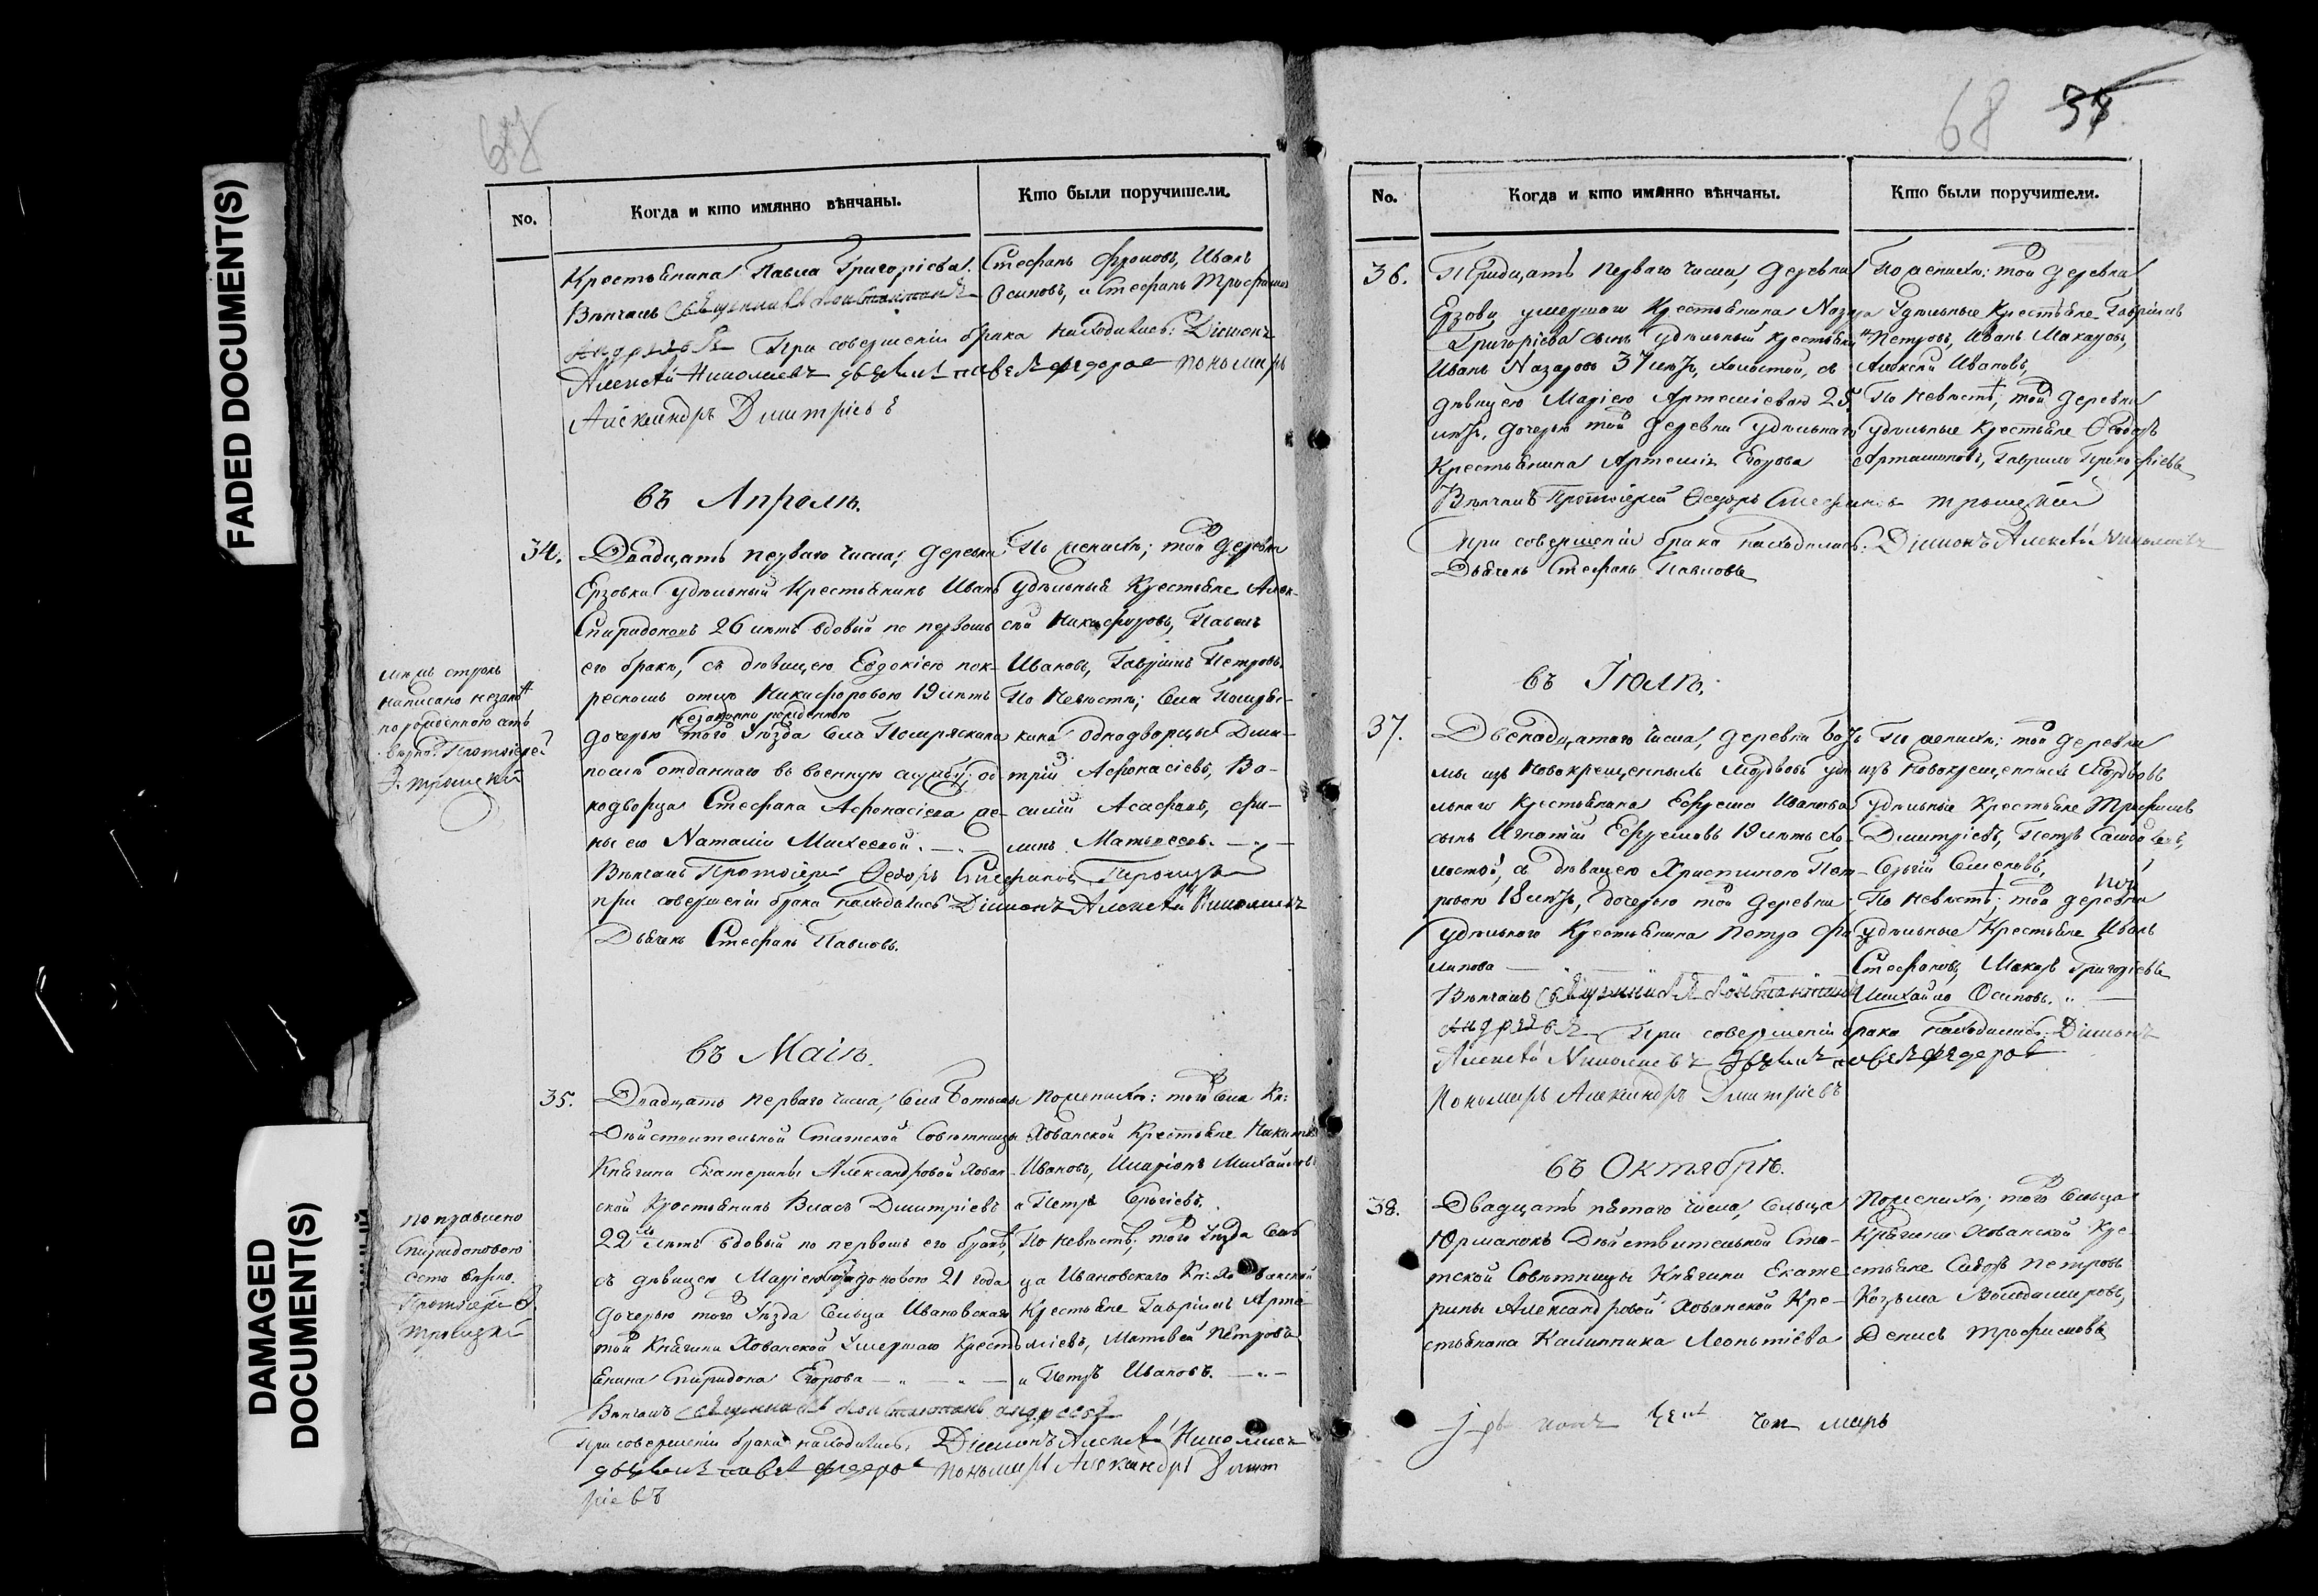 FADED DOCUMENT(S)
DAMAGED DOCUMENT(S)
68
No.
Когда и кто имянно вѣнчаны.
Кто были поручители.
Крестьянина Павла Григорьева.
Вѣнчалъ Священникъ Константинъ
Андреевъ При совершеніи брака находились: Діаконъ
Алексѣй Николаевъ дьячекъ павелъ федоровъ пономарь
Александръ Дмитріевъ
Стефанъ Фроловъ, Иванъ
Осиповъ, и Стефанъ Трофимовъ
въ Апрелѣ.
34.
Двадцать перваго числа, деревни
Ерзовки удѣльный крестьянинъ Иванъ
Спиридоновъ 26 лѣтъ вдовый по первомъ
его бракѣ, съ дѣвицею Евдокіею пок-
ресномъ отцѣ Никифоровою 19 лѣтъ
незаконно рожденною
дочерью того Уѣзда села
послѣ отданнаго въ военную службу од-
нодворца Стефана Афонасіева же-
ны его Наталіи Михеевой.
Вѣнчалъ Протоіерей Ѳедоръ Стефановъ
при совершеніи брака находились Діаконъ Алексѣй Николаевъ
Дьячекъ Стефанъ Павловъ.
По женихѣ; той деревни
удѣльныя Крестьяне Алек-
сѣй Никифоровъ, Павелъ
Ивановъ, Гавріилъ Петровъ.
По невѣстѣ; села
кина однодворцы Дми-
трій Афонасіевъ, Ва-
силій Асафовъ, Фи-
липъ Матвеевъ.
написано незакон
но рожденною
вѣрно. Протоіерей
въ Маіѣ.
35.
Двадцать перваго числа, села Ботьмы
Дѣйствительной Статской Совѣтницы
Княгини Екатерины Александровой Хован-
ской Крестьянинъ Власъ Дмитріевъ
22 лѣтъ вдовый по первомъ его бракѣ,
съ дѣвицею Маріею Спиридоновою 21 года
дочерью того Уѣзда Сельца Ивановскаго
той Княгини Хованской умершаго Кресть
янина Спиридона Егорова
Вѣнчалъ священникъ Константинъ андреевъ
При совершеніи брака находились, Діаконъ Алексѣй Николаевъ
дьячекъ павелъ федоровъ пономарь Александръ Дмит
ріевъ
По женихѣ: того села Кн:
Хованской Крестьяне Никита
Ивановъ, Иларіонъ Михайловъ
и Петръ Сергіевъ.
По невѣстѣ; того Уѣзда Сель
ца Ивановскаго Кн: Хованской
Крестьяне Гавріилъ Арте-
міевъ, Матвей Петровъ
и Петръ Ивановъ.
поправлено
Спиридоновою
вѣрно.
Протоіерей Ѳ.
Троицкій
68
No.
Когда и кто имянно вѣнчаны.
Кто были поручители.
36.
Тридцать перваго числа, деревни
Ерзовки умершаго Крестьянина Назара
Григорьева сынъ удѣльный крестьянинъ
Иванъ Назаровъ 37 лѣтъ, холостой, съ
дѣвицею Маріею Артеміевою 25.
лѣтъ, дочерью той деревни удѣльнаго
Крестьянина Артемія Егорова
Вѣнчалъ Протоіерей Ѳедоръ Стефановъ Троицкій
При совершеніи брака находились: Діаконъ Алексѣй Николаевъ
Дьячекъ Стефанъ Павловъ
По женихѣ: той деревни
Удѣльные Крестьяне Гавріилъ
Петровъ, Иванъ Макаровъ,
Алексѣй Ивановъ,
По невѣстѣ; той деревни
удѣльные крестьяне Ѳедоръ
Артамоновъ, Гаврило Прокофіевъ
въ Іюлѣ.
37.
Двенадцатого числа, деревни Боть
мы изъ новокрещенныхъ Мордовъ удѣ
льнаго крестьянина Ефрема Иванова
сынъ Игнатій Ефремовъ 19 лѣтъ хо-
лостой, съ дѣвицею Христиною Пет-
ровою 18 лѣтъ, дочерью той деревни
удѣльнаго Крестьянина Петра Фи
липова
Вѣнчалъ Священникъ Константинъ
Андреевъ При совершеніи брака находились. Діаконъ
Алексѣй Николаевъ дьячекъ павелъ федоровъ
Пономарь Александръ Дмитріевъ
По женихѣ: той деревни
изъ новокрещенныхъ Мордовъ
удѣльные Крестьяне Трофимъ
Дмитріевъ, Петръ
Сергій Семеновъ,
По невѣстѣ; той деревни
удѣльные Крестьяне Иванъ
Стефановъ, Макаръ Григорьевъ
Михайло Осиповъ.
въ Октябрѣ.
38.
Двадцать пятаго числа, Сельца
Юрманокъ Дѣйствительной Ста-
тской Совѣтницы Княгини Екате
рины Александровой Хованской Кре-
стьянина Калинника Леонтіева
По женихѣ; того Сельца
Княгини Хованской Кре-
стьяне Сидоръ Петровъ
Козьма Володимировъ,
Денисъ Трофимовъ